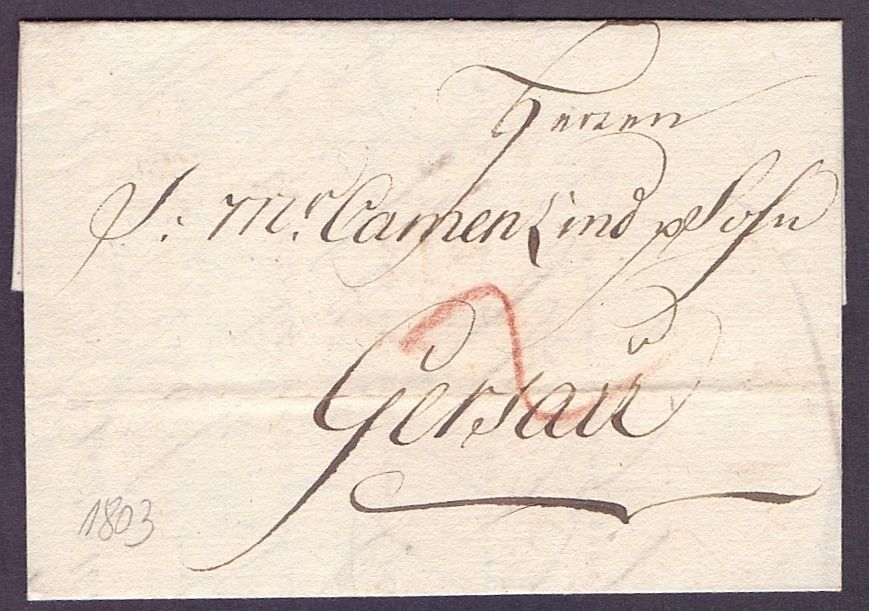 Herren
J: Mr. Camenzind & Sohn
2
Gersau
1803